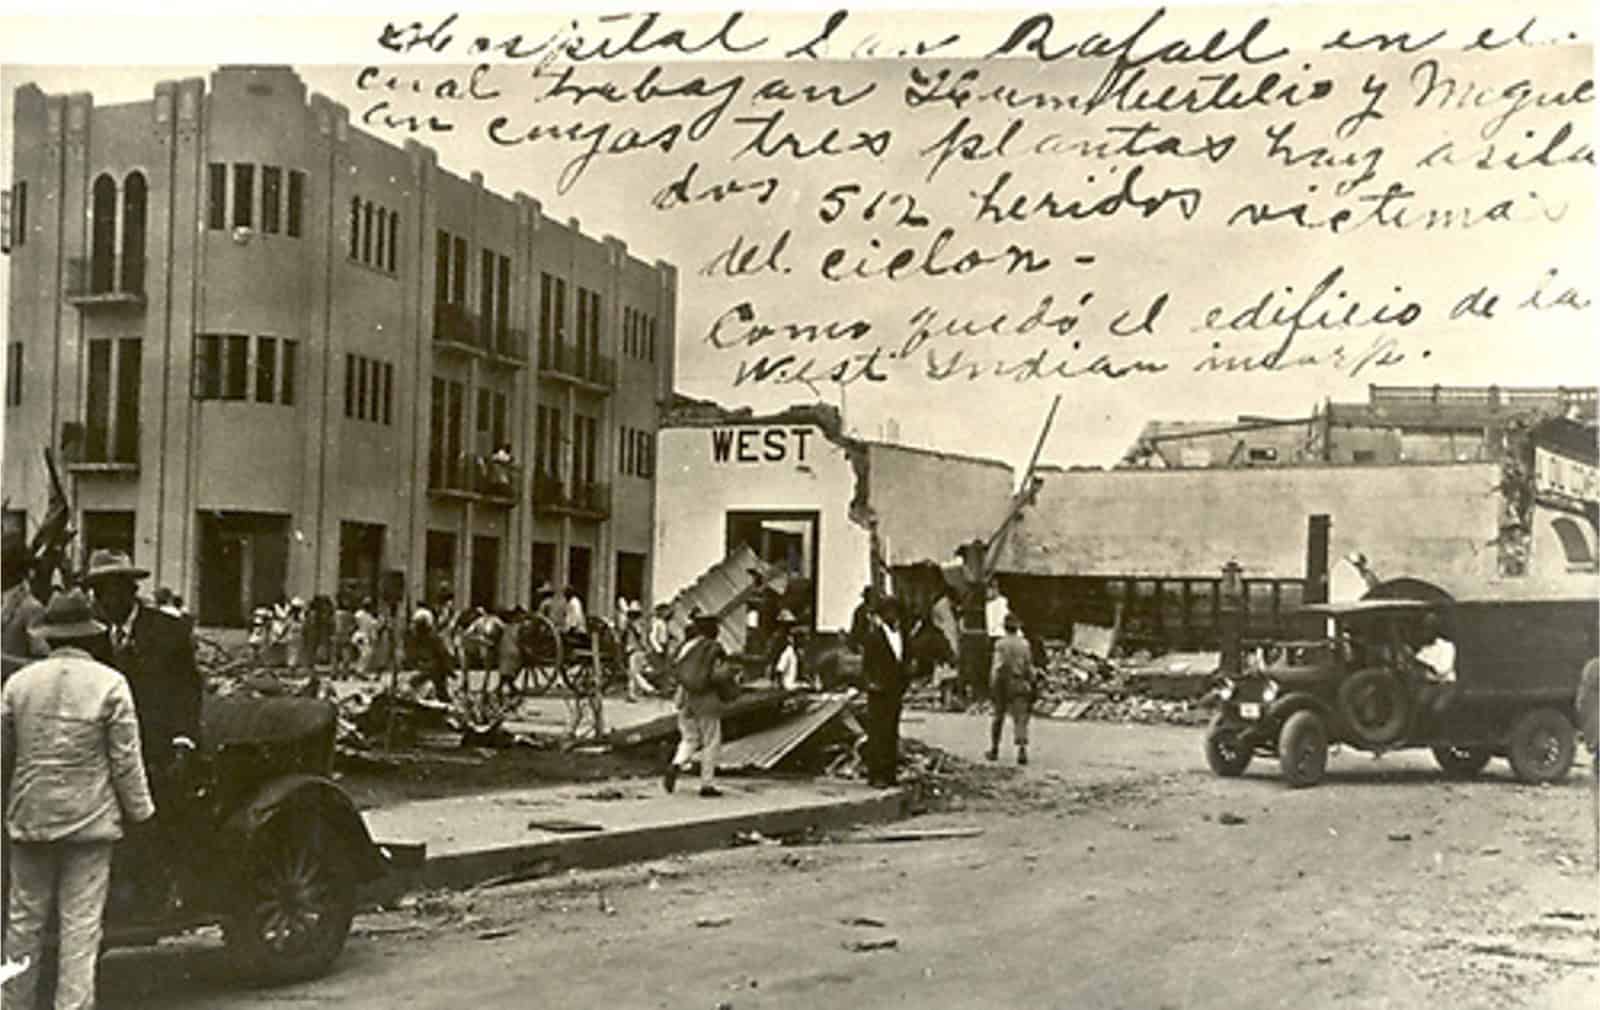 Hospital San Rafael en el
cual trabajan Humbertilio y Miguel
en cuyas tres plantas hay asila
dos 512 heridos victimas
del ciclon-
Como quedó el edificio de la
West Indian incorp.
WEST